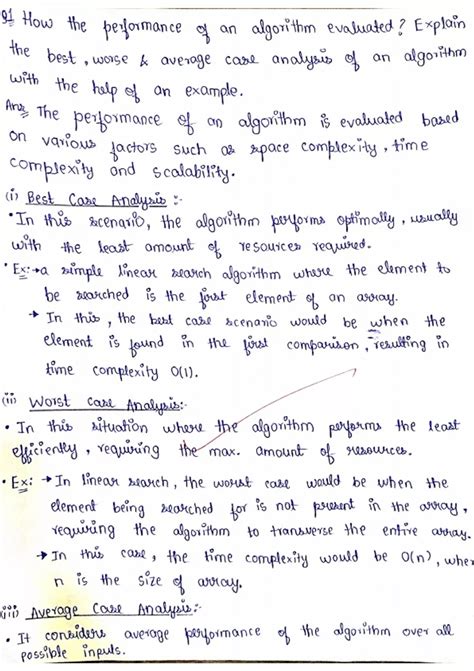 Q1 How the performance of an algorithm evaluated? Explain
the best, worse & average case analysis of an algorithm
with the help of an example.
Ans The performance of an algorithm is evaluated based
on various factors such as space complexity, time
complexity and scalability.
(i) Best Case Analysis :-
• In this scenario, the algorithm performs optimally, usually
with the least amount of resources required.
• Ex:→ a simple linear search algorithm where the element to
be searched is the first element of an array.
→ In this, the best case scenario would be when the
element is found in the first comparison, resulting in
time complexity O(1).
(ii) Worst Case Analysis:-
• In this situation where the algorithm performs the least
efficiently, requiring the max. amount of resources.
• Ex: → In linear search, the worst case would be when the
element being searched for is not present in the array,
requiring the algorithm to transverse the entire array.
→ In this case, the time complexity would be O(n), wher
n is the size of array.
(iii) Average Case Analysis:-
• It considers average performance of the algorithm over all
possible inputs.